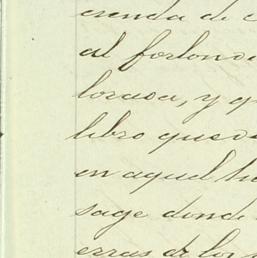 erenda de c
al forlon
lorasa, y q
libro queda
en aquel hu
sage donde
erras de los